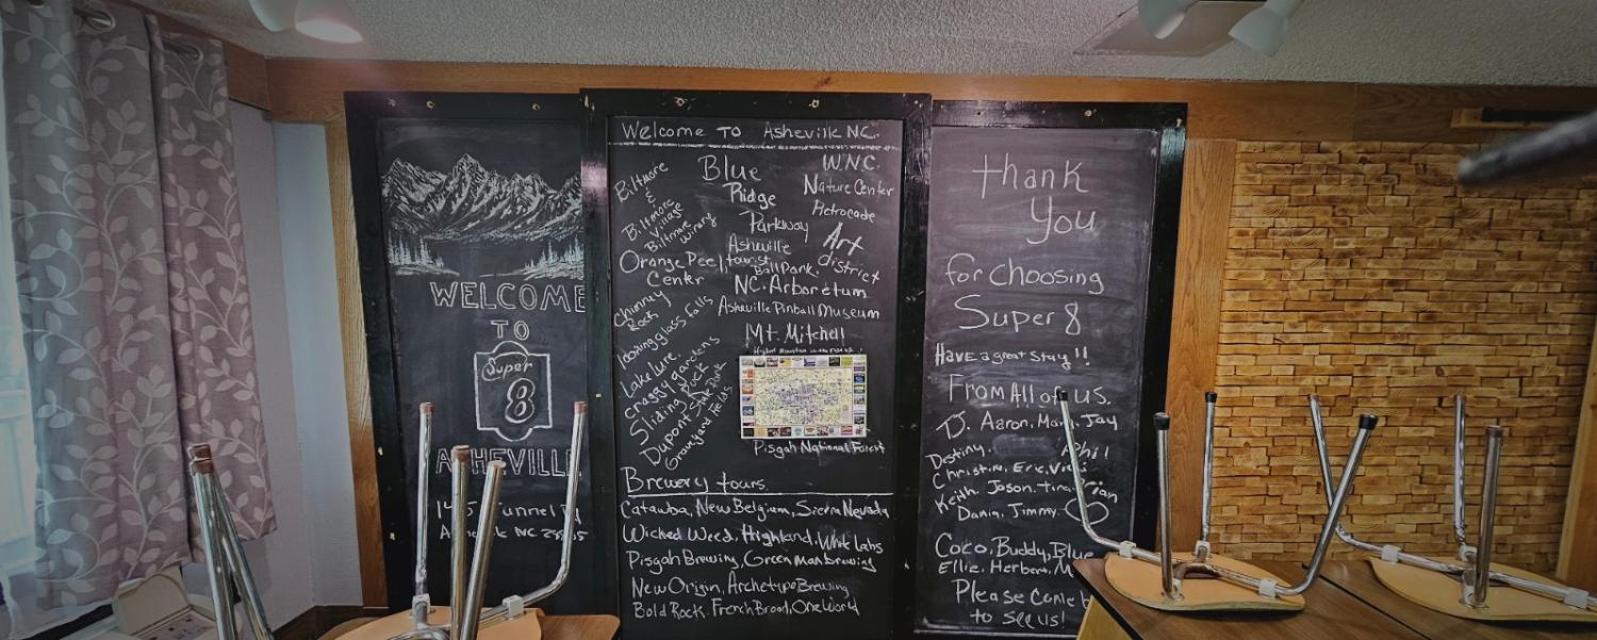 WELCOME
TO
Super
8
Tunnel
NC
Welcome TO Asheville NC.
Biltmore
&
Biltmore
Village
Biltmore
winery
Orange Peel
Center
Chimney
Rock
looking glass falls
Lake lure.
craggy gardens
Sliding Rock
Dupont State Park
Graveyard fields
Blue
Ridge
Parkway
Asheville
tourist
Ball Park.
W.N.C.
Nature Center
Art
district
NC. Arboretum
Asheville Pinball Museum
Mt. Mitchell
Pisgah National Forest
Brewery tours.
Catawba, New Belgium, Sierra Nevada
Wicked Weed, Highland, White Labs
Pisgah Brewing, Green man brewing
New Origin, Archetype Brewing
Bold Rock, French Broad, One World
thank
You
for choosing
Super 8
Have a great Stay!!
From All of us.
D. Aaron, Jay
Destiny. Phil
Christine, Eric,
Keith. Jason. Tina.
Dania, Jimmy.
Coco, Buddy, Blue
Ellie, Herbert,
Please come
to see us!